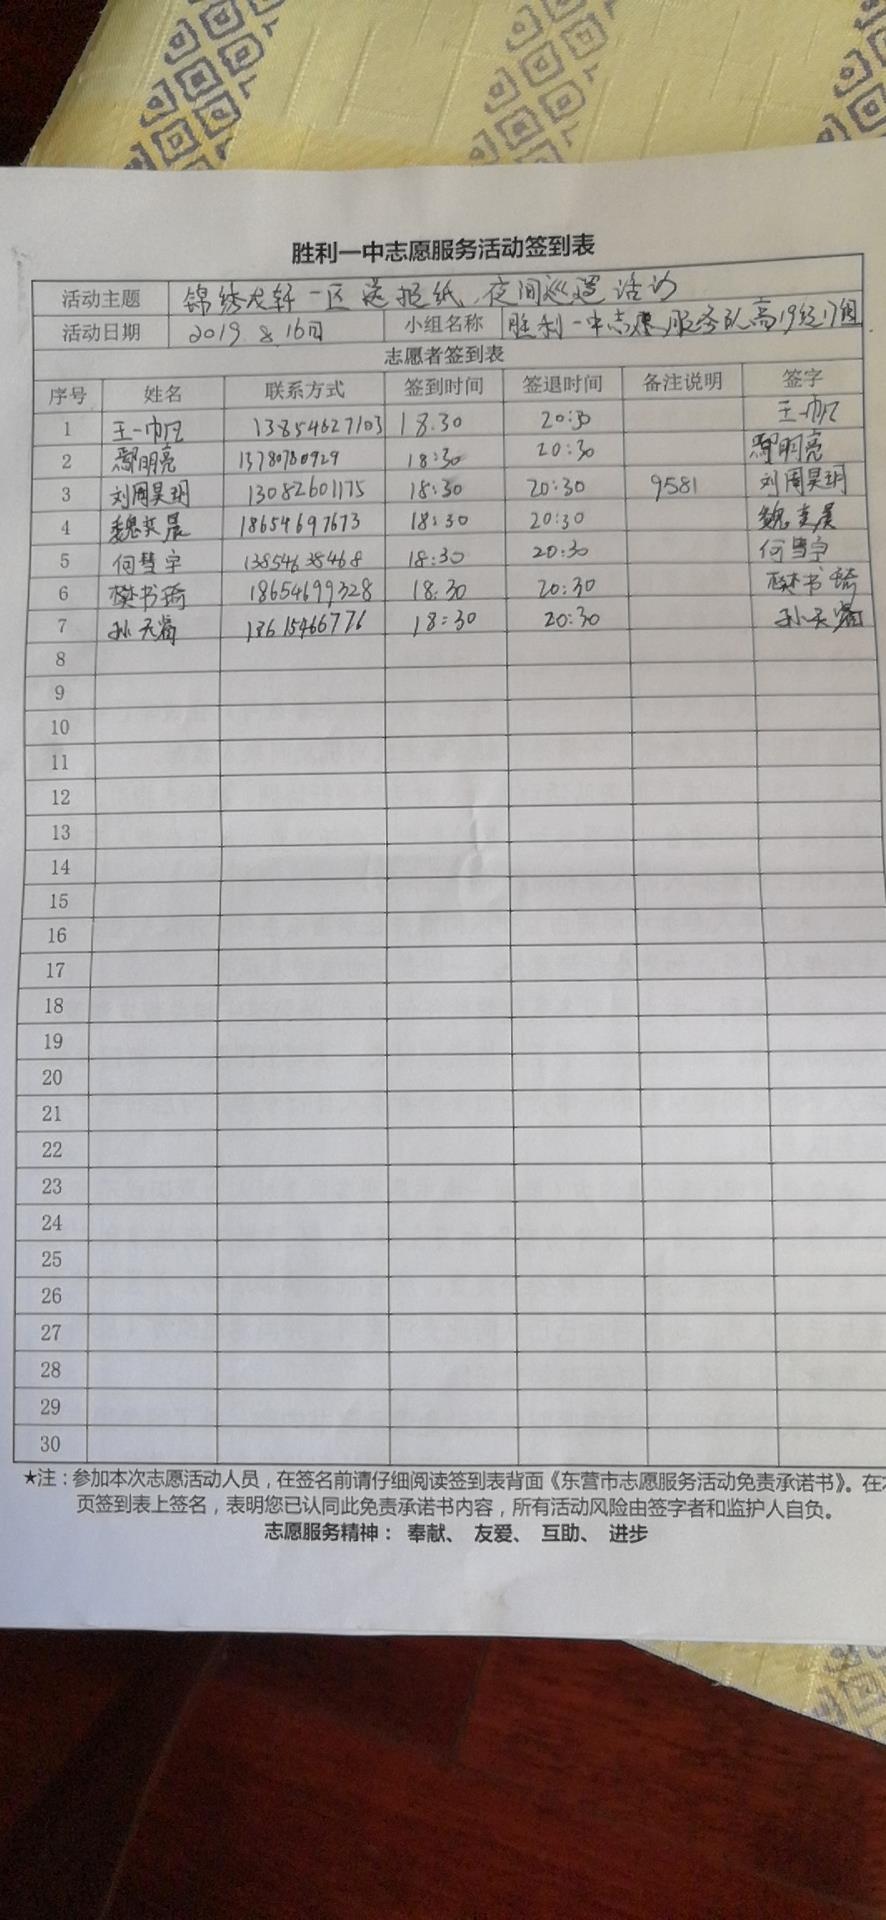 胜利一中志愿服务活动签到表
活动主题 锦绣龙轩一区送报纸、夜间巡逻活动
活动日期 2019 8.16日 小组名称 胜利一中志愿服务队高19级17组
志愿者签到表
序号 姓名 联系方式 签到时间 签退时间 备注说明 签字
1 王一帆 13854627103 18.30 20:30 王一帆
2 鄢明亮 13780780929 18:30 20:30 鄢明亮
3 刘周昊玥 13082601175 18:30 20:30 9581 刘周昊玥
4 魏奕晨 18654697673 18:30 20:30 魏奕晨
5 何慧宇 13854638468 18:30 20:30 何慧宇
6 樊书琦 18654699328 18:30 20:30 樊书琦
7 孙天 13615466776 18:30 20:30 孙天
8
9
10
11
12
13
14
15
16
17
18
19
20
21
22
23
24
25
26
27
28
29
30
★注：参加本次志愿活动人员，在签名前请仔细阅读签到表背面《东营市志愿服务活动免责承诺书》。在本
页签到表上签名，表明您已认同此免责承诺书内容，所有活动风险由签字者和监护人自负。
志愿服务精神： 奉献、 友爱、 互助、 进步